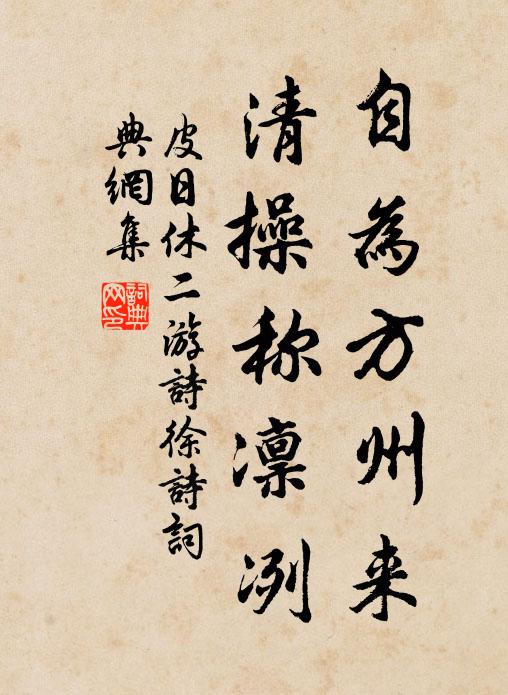 自為方州来
清操称凛冽
皮日休二游詩徐詩詞
典網集
詞典
网印